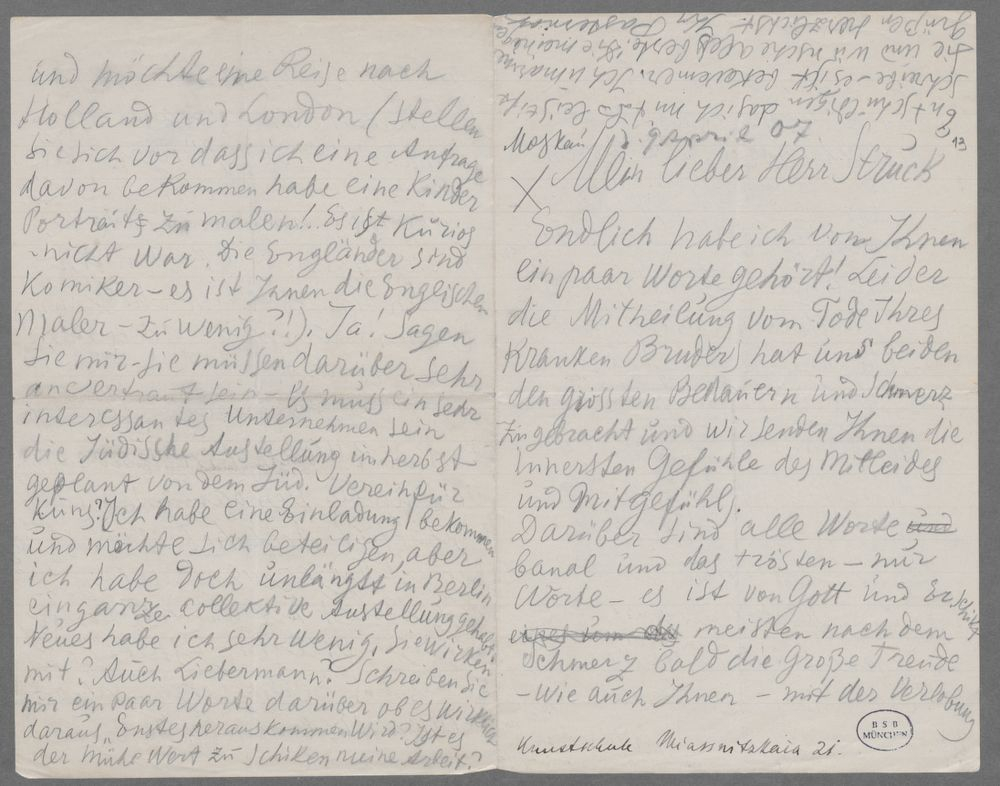 Moskau d. 9 April 07
13
Mein lieber Herr Struck
Endlich habe ich von Ihnen
ein paar Worte gehört! Leider
die Mittheilung vom Tode Ihres
Kranken Bruders hat uns beiden
den grössten Bedauern und Schmerz
zugebracht und wir senden Ihnen die
innersten Gefühle des Mitleides
und Mitgefühl.
Darüber sind alle Worte und
banal und das trösten – nur
Worte – es ist von Gott und Er schikt
meisten nach dem
Schmerz bald die Große Freude
– wie auch Ihnen – mit der Verlobung
Kunstschule Miassnitzkaia 21.
BSB
MÜNCHEN
und möchte eine Reise nach
Holland und London (Stellen
Sie sich vor dass ich eine Anfrage
davon bekommen habe eine Kinder
Portraits zu malen!.. Es ist Kurios
nicht war. Die Engländer sind
Komiker – es ist Ihnen die Englischen
Maler – zu wenig?!). Ja! Sagen
Sie mir – Sie müssen darüber sehr
anvertraut sein – Es muss ein sehr
interessantes Unternehmen sein
die Jüdische Austellung im herbst
geplant von dem Jüd. Verein für
Kunst? Ich habe eine Einladung bekommen
und möchte sich beteiligen, aber
ich habe doch unlängst in Berlin
ein ganze collektive Austellung gehabt.
Neues habe ich sehr wenig. Sie wirken
mit? Auch Liebermann? Schreiben Sie
mir ein paar Worte darüber ob es wirklich
daraus „Ernstes herauskommen wird? Ist es
der mühe Wert zu schiken meine Arbeit?
Entschuldigen das ich mit d. Bleistift
schreibe – es ist bekwemer. Ich umarme
Sie und wünsche alles beste, Die meinige
Grüßen herzlichst. Ihr Pasternak